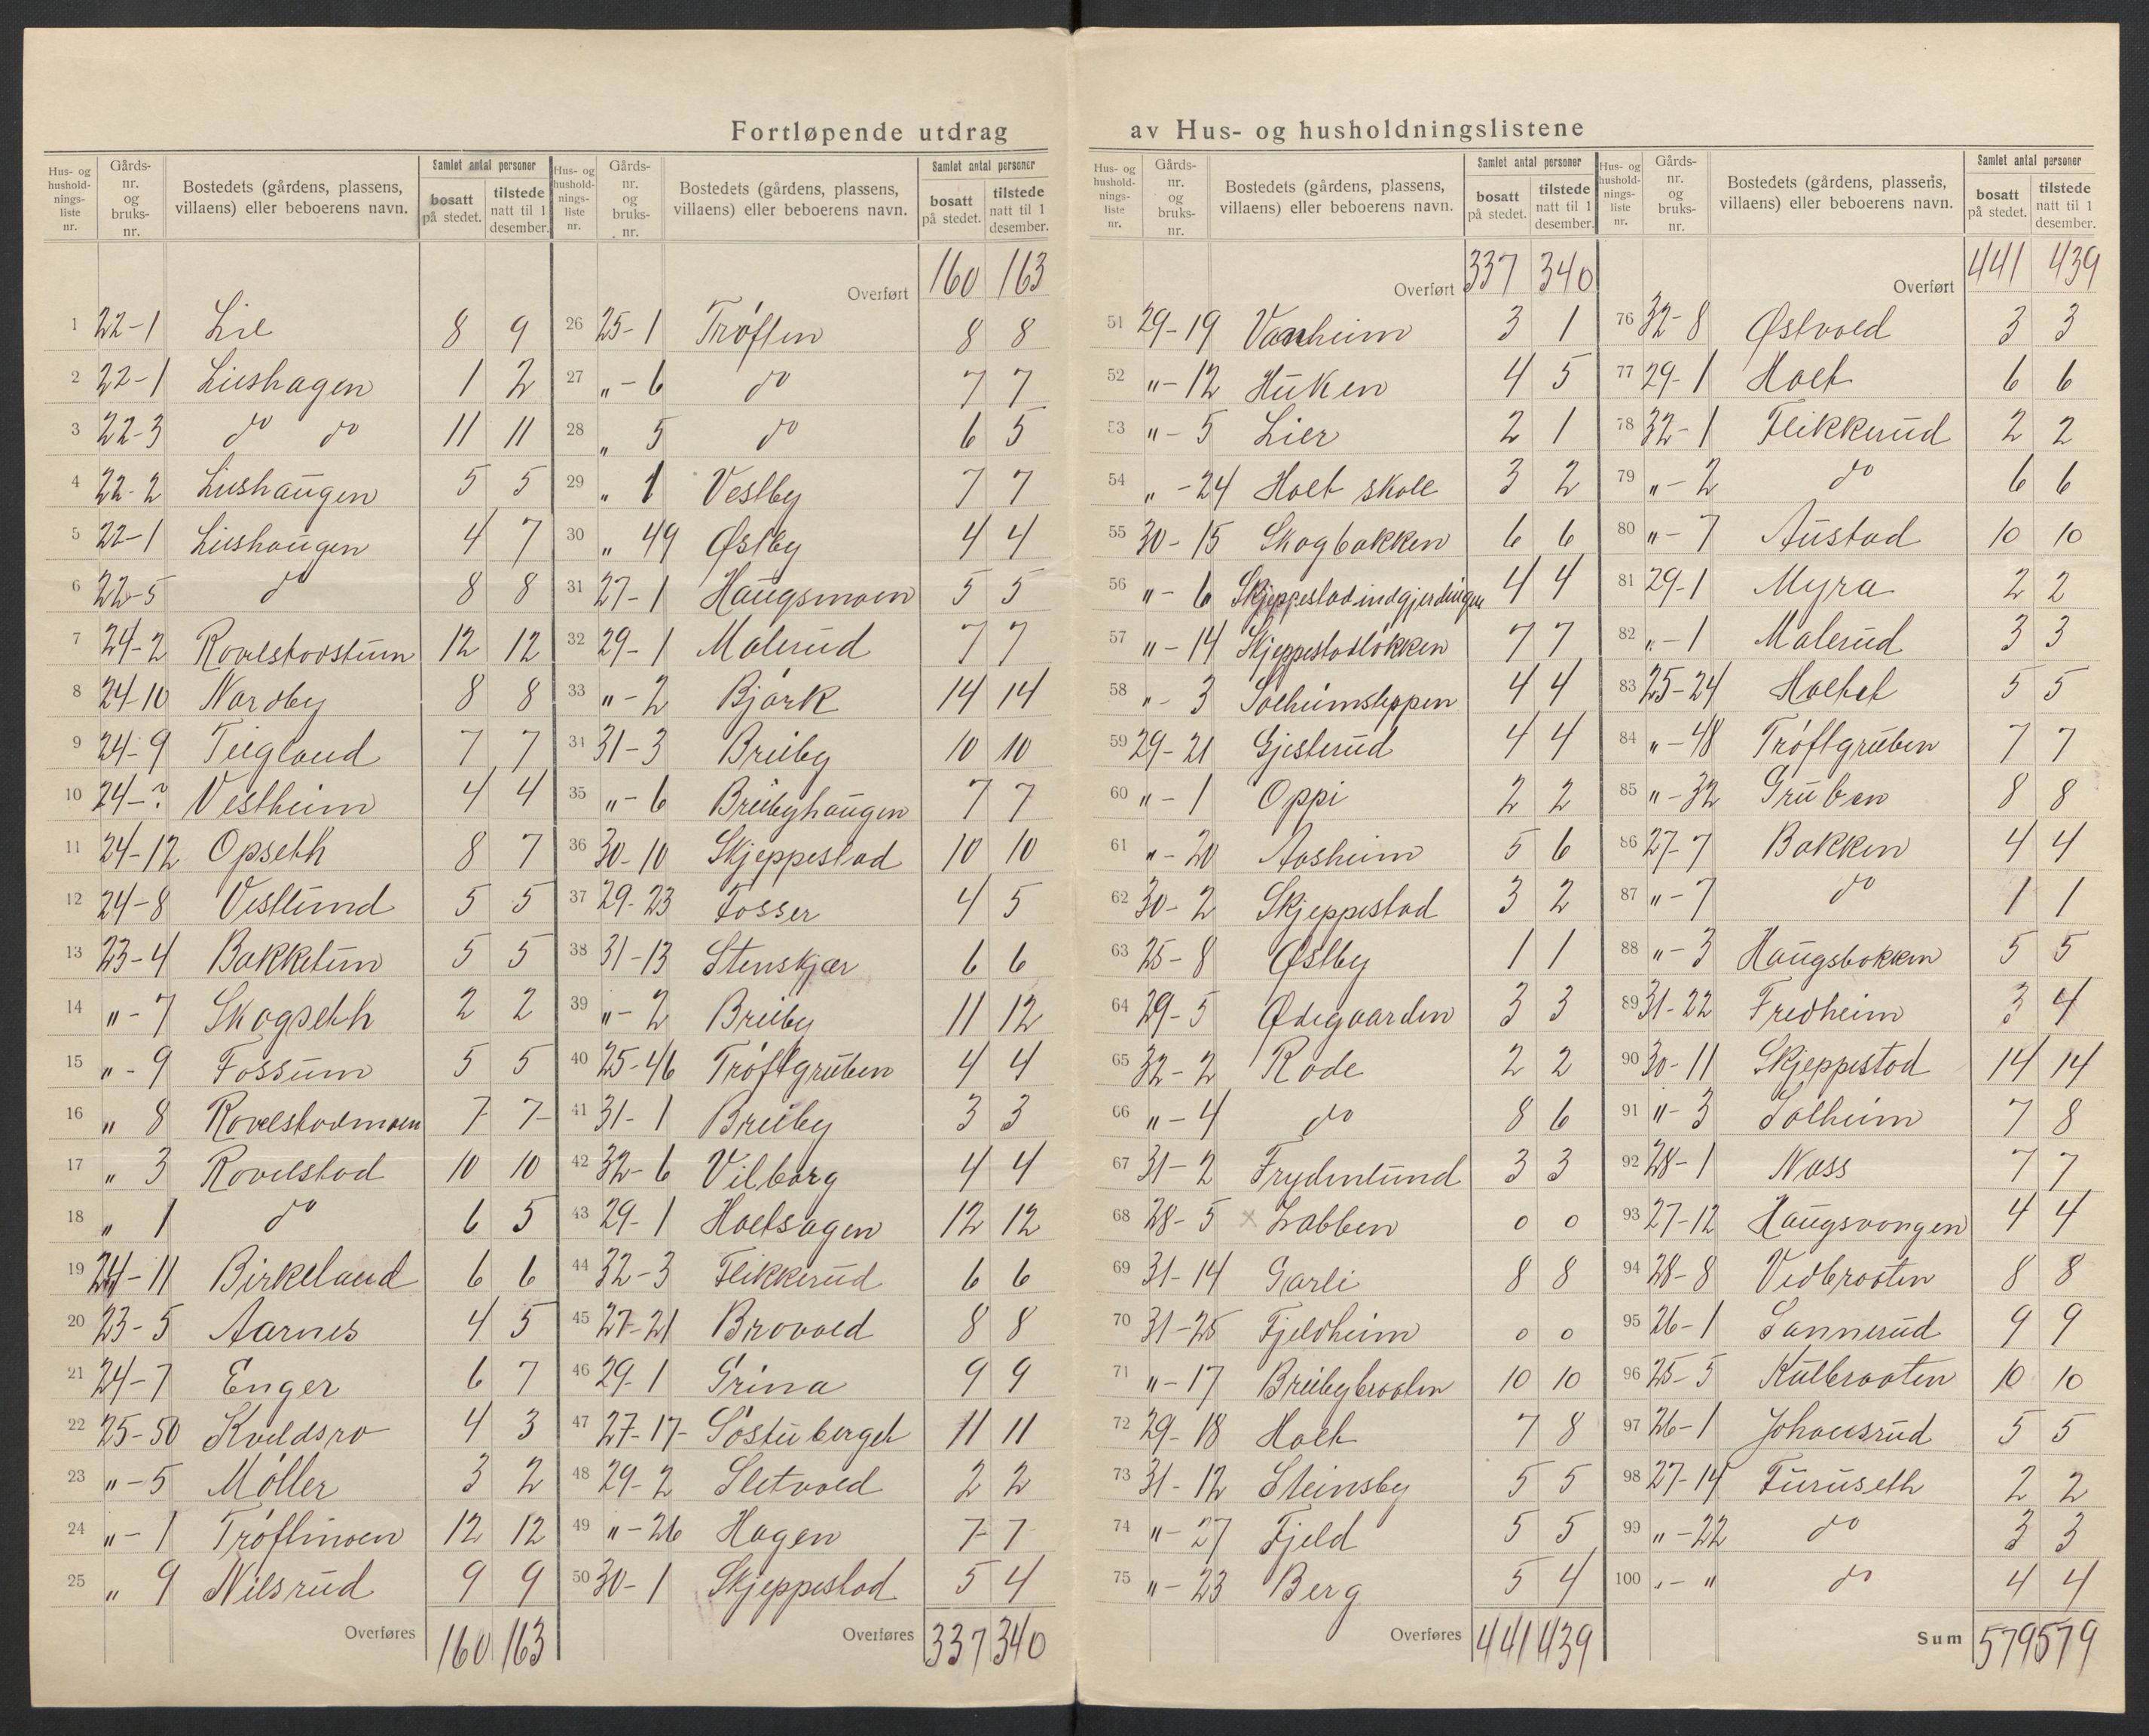 Fortløpende utdrag av Hus- og husholdningslistene
Hus- og husholdnings-liste nr. Gårds-nr. og bruks-nr. Bostedets (gårdens, plassens, villaens) eller beboerens navn. Samlet antal personer bosatt på stedet. tilstede natt til 1 desember.
1 22-1 Lie 8 9
2 22-1 Lieshagen 1 2
3 22-3 do do 11 11
4 22-2 Lieshaugen 5 5
5 22-1 Lieshaugen 4 7
6 22-5 do 8 8
7 24-2 Rovelstadstun 12 12
8 24-10 Nordby 8 8
9 24-9 Teigland 7 7
10 24-? Vestheim 4 4
11 24-12 Opseth 8 7
12 24-8 Vestlund 5 5
13 23-4 Bakketun 5 5
14 " - 7 Skogseth 2 2
15 " - 9 Fossum 5 5
16 " 8 Rovelstadmoen 7 7
17 " 3 Rovelstad 10 10
18 " 1 do 6 5
19 24-11 Birkeland 6 6
20 23-5 Aarnes 4 5
21 24-7 Enger 6 7
22 25-50 Kveldsro 4 3
23 " - 5 Møller 3 2
24 " - 1 Trøftmoen 12 12
25 " 9 Nilsrud 9 9
Overføres 160 163
Hus- og husholdnings-liste nr. Gårds-nr. og bruks-nr. Bostedets (gårdens, plassens, villaens) eller beboerens navn. Samlet antal personer bosatt på stedet. tilstede natt til 1 desember.
Overført 160 163
26 25-1 Trøften 8 8
27 " - 6 do 7 7
28 " 5 do 6 5
29 " 1 Vestby 7 7
30 " 49 Østby 4 4
31 27-1 Haugsmoen 5 5
32 29-1 Malerud 7 7
33 " - 2 Bjørk 14 14
34 31-3 Breiby 10 10
35 " - 6 Breibyhaugen 7 7
36 30-10 Skjeppestad 10 10
37 29-23 Fosser 4 5
38 31-13 Stenskjær 6 6
39 " - 2 Breiby 11 12
40 25-46 Trøftgruben 4 4
41 31-1 Breiby 3 3
42 32-6 Vilborg 4 4
43 29-1 Holtsagen 12 12
44 32-3 Flikkerud 6 6
45 27-21 Brovold 8 8
46 29-1 Grina 9 9
47 27-17- Søstuberget 11 11
48 29-2 Sletvold 2 2
49 " - 26 Hagen 7 7
50 30-1 Skjeppestad 5 4
Overføres 337 340
Hus- og husholdnings-liste nr. Gårds-nr. og bruks-nr. Bostedets (gårdens, plassens, villaens) eller beboerens navn. Samlet antal personer bosatt på stedet. tilstede natt til 1 desember.
Overført 337 340
51 29-19 Vonheim 3 1
52 " - 12 Huken 4 5
53 " - 5 Lier 2 1
54 " - 24 Holt skole 3 2
55 30-15 Skogbakken 6 6
56 " - 6 Skjeppestadindgjerdingen 4 4
57 " - 14 Skjeppestadløkken 7 7
58 " - 3 Solheimsteppen 4 4
59 29-21 Gjesterud 4 4
60 " - 1 Oppi 2 2
61 " - 20 Aasheim 5 6
62 30-2 Skjeppestad 3 2
63 25-8 Østby 1 1
64 29-5 Ødegaarden 3 3
65 32-2 Rode 2 2
66 " - 4 do 8 6
67 31-2 Frydenlund 3 3
68 28-5 x Labben 0 0
69 31-14 Garli 8 8
70 31-25 Fjeldheim 0 0
71 " - 17 Breibybraaten 10 10
72 29-18 Holt 7 8
73 31-12 Steinsby 5 5
74 " - 27 Fjeld 5 5
75 " - 23 Berg 5 4
Overføres 441 439
Hus- og husholdnings-liste nr. Gårds-nr. og bruks-nr. Bostedets (gårdens, plassens, villaens) eller beboerens navn. Samlet antal personer bosatt på stedet. tilstede natt til 1 desember.
Overført 441 439
76 32-8 Østvold 3 3
77 29-1 Holt 6 6
78 32-1 Flikkerud 2 2
79 " - 2 do 6 6
80 " - 7 Austad 10 10
81 29-1 Myra 2 2
82 " - 1 Malerud 3 3
83 25-24 Holtet 5 5
84 " - 48 Trøftgruben 7 7
85 " - 32 Gruben 8 8
86 27-7 Bakken 4 4
87 " - 7 do 1 1
88 " - 3 Haugsbakken 5 5
89 31-22 Fredheim 3 4
90 30-11 Skjeppestad 14 14
91 " - 3 Solheim 7 8
92 28-1 Nass 7 7
93 27-12 Haugsvangen 4 4
94 28-8 Vedbraaten 8 8
95 26-1 Sannerud 9 9
96 25-5 Kulbraaten 10 10
97 26-1 Johansrud 5 5
98 27-14 Furuseth 2 2
99 " - 22 do 3 3
100 " - " do 4 4
Sum 579 579